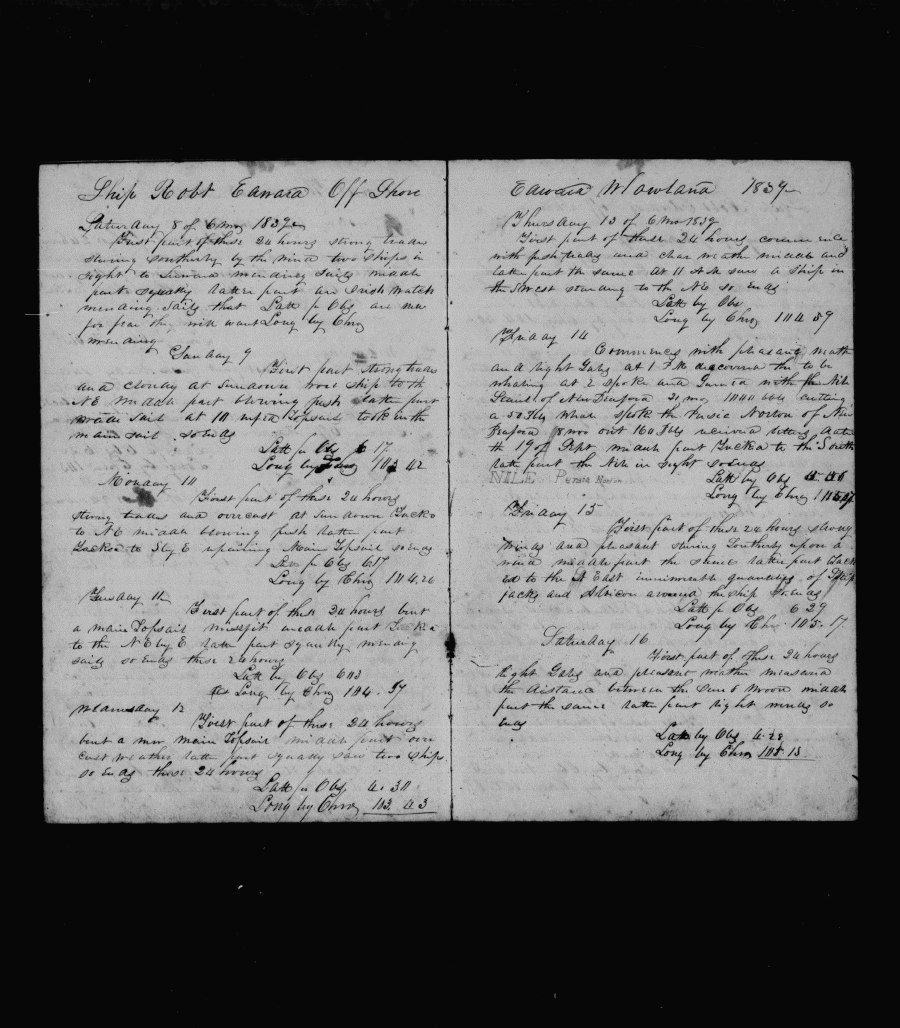 Ship Robt Edward Off Shore
Saturday 8 of 6 mo 1839
First part of these 24 hours strong trades
stering southerly by the wind two ships in
sight to leward mending sails middle
part squally latter part
mending sails that Latt p Obs
for fear they will want Long by Chro
mending
Sunday 9
First part strong trades
and cloudy at sundown wore ship to the
NE middle part blowing fresh latter part
sail at 10 topsail took in the
main sail so ends
Latt p Obs 6 17
Long by Chro 42
Monday 10
First part of these 24 hours
strong trades and overcast at sundown Tacked
to NE middle blowing fresh latter part
Tacked to S by E repairing Main Topsail so ends
p Obs 617
Long by Chro 104.26
Tuesday 11
First part of these 24 hours bent
a main Topsail middle part Tacked
to the NE by E latter part squally mending
sails so ends these 24 hours
Latt by Obs
Long by Chro 104.
Wednesday 12
First part of these 24 hours
bent a new main Topsail middle part over
cast weather latter part squally saw two ships
so ends these 24 hours
Latt p Obs 4.30
Long by Chro 103. 43
Edward W Cowland 1839
Thursday 13 of 6 mo 1839
First part of these 24 hours commence
with fresh trades and clear weather middle and
latter part the same at 11 AM saw a ship in
the SWest standing to the NE so ends
Latt by Obs
Long by Chro 104 59
Friday 14
Commences with pleasant weath
and light Gales at 1 PM discovered to be
whaling at 2 spoke and Gamed with the Nile
of New Bedford 20 mo bbls cutting
a 50 bbls Whale spoke the Norton of New
Bedford 8 mos out 160 bbls received letters date
19 of Sept middle part Tacked to the South
latter part the Nile in sight so ends
NILE
Latt by Obs
Long by Chro
Friday 15
First part of these 24 hours strong
winds and pleasant stering Southerly upon a
wind middle part the same latter part Tack
ed to the N East innumerable quantitys of
jacks and around the ship so ends
Latt p Obs 6 29
Long by Chro 105. 17
Saturday 16
First part of these 24 hours
light Gales and pleasant weather measured
the distance between the Sun & Moon middle
part the same latter part light winds so
ends
Latt by Obs 4.28
Long by Chro 105.13